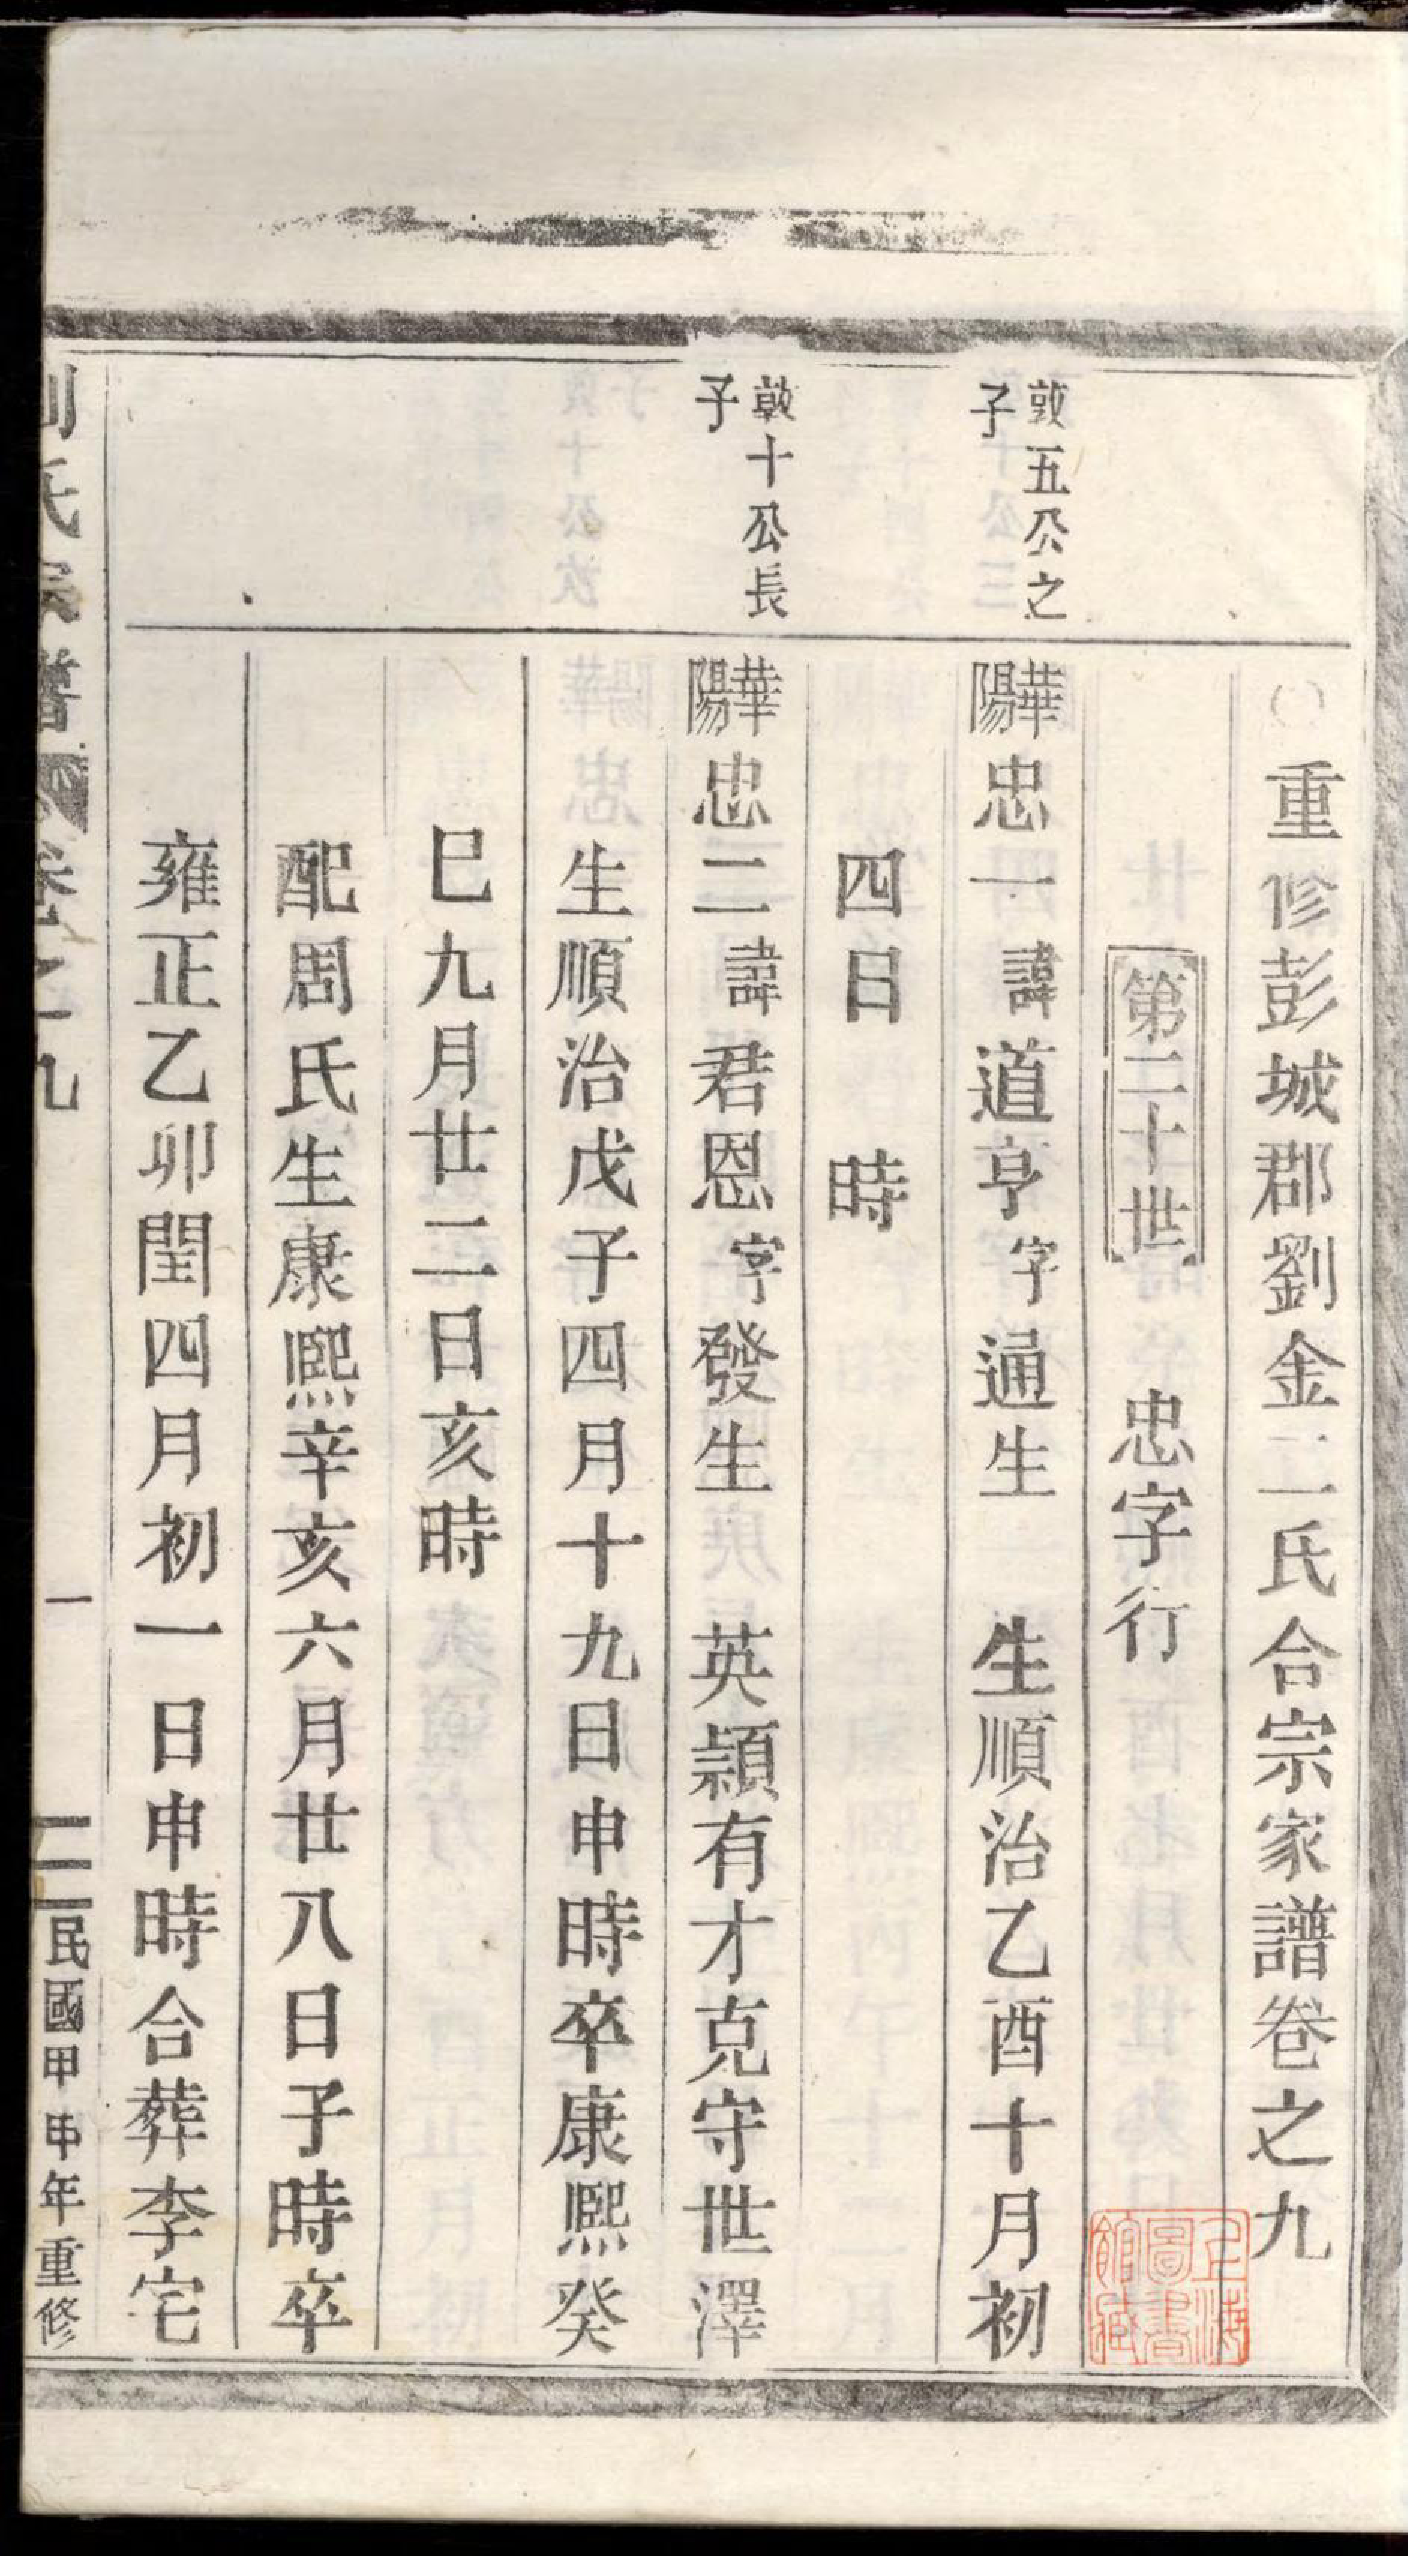 重修彭城郡劉金二氏合宗家譜卷之九
第二十世 忠字行
敦五公之子
華陽忠一諱道亨字通生 生順治乙酉十月初
四日 時
敦十公長子
華陽忠二諱君恩字發生 英穎有才克守世澤
生順治戊子四月十九日申時卒康熙癸
巳九月廿二日亥時
配周氏生康熙辛亥六月廿八日子時卒
雍正乙卯閏四月初一日申時合葬李宅
劉氏家譜 卷之九 一 民國甲申年重修
上海圖書館藏